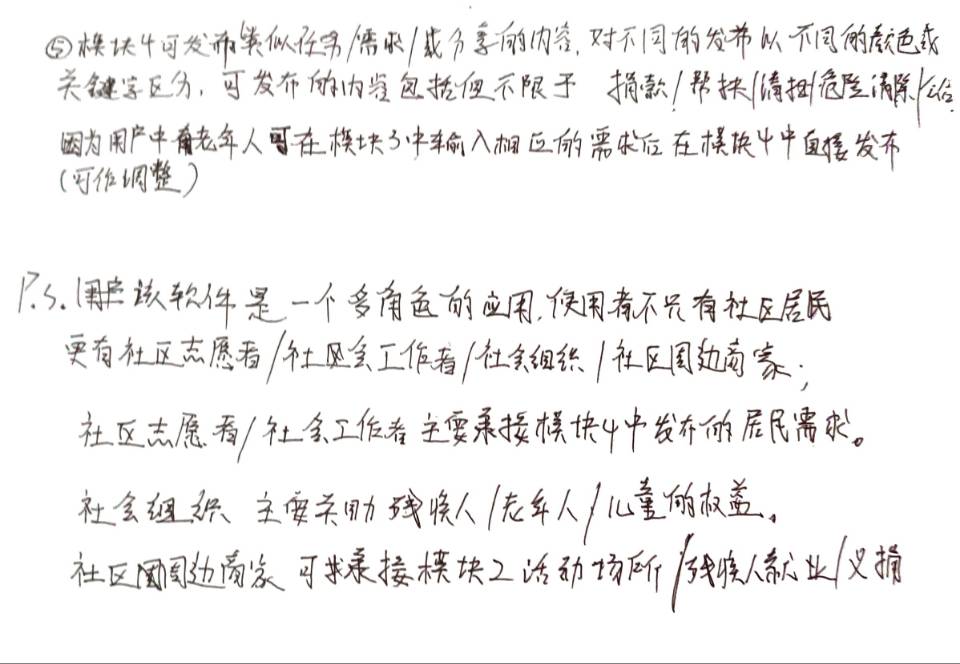 ⑤模块4可发布类似任务/需求/或分享的内容,对不同的发布以不同的颜色或
关键字区分,可发布的内容包括但不限于 捐款/帮扶/清扫/危险清除/
因为用户中有老年人可在模块3中输入相应的需求后在模块4中直接发布
(可作调整)
P.S.该软件是一个多角色的应用,使用者不只有社区居民
更有社区志愿者/社会工作者/社会组织/社区周边商家;
社区志愿者/社会工作者主要承接模块4中发布的居民需求。
社会组织 主要关助残疾人/老年人/儿童的权益。
社区周边商家 可承接模块2活动场所/残疾人就业/义捐